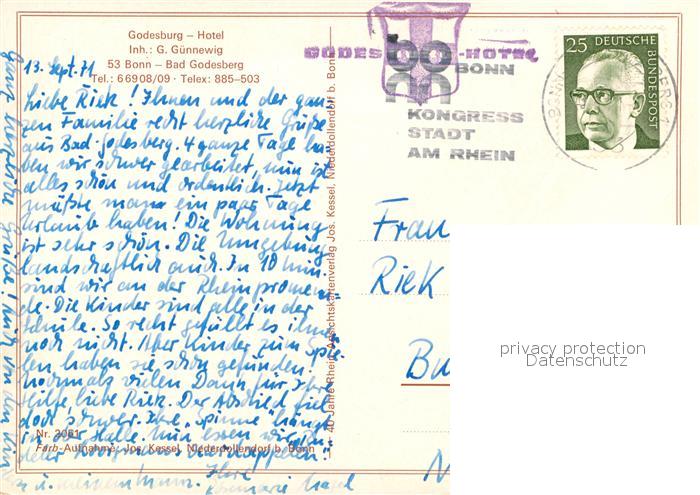 Godesburg – Hotel
Inh.: G. Günnewig
53 Bonn – Bad Godesberg
Tel.: 66908/09 · Telex: 885–503
13. Sept. 71
Liebe Riek! Ihnen und der gan-
zen Familie recht herzliche Grüße
aus Bad-Godesberg. 4 ganze Tage ha-
ben wir schwer gearbeitet, nun ist
alles schön und ordentlich. Jetzt
müßte man ein paar Tage
Urlaube haben! Die Wohnung
ist sehr schön. Die Umgebung
landschaftlich auch. In 10 min.
sind wir an der Rheinpromena-
de. Die Kinder sind alle in der
Schule. So recht gefällt es ihnen
noch nicht. Aber Kinder zum Spie-
len haben sie schon gefunden.
Nochmals vielen Dank für Ihre
Hilfe liebe Riek. Der Abschied fiel
doch schwer. Ihre "Spinne" hängt
in der Halle. Nun essen wir
Ihre
Rosemarie
u. meinem Mann.
Ganz herzliche Grüße! Auch von den
Nr. 3061
Farb-Aufnahme: Jos. Kessel, Niederdollendorf b. Bonn
40 Jahre Rhein. Ansichtskartenverlag Jos. Kessel, Niederdollendorf b. Bonn
GODES -HOTEL
bonn
BONN
KONGRESS
STADT
AM RHEIN
25 DEUTSCHE
BUNDESPOST
Frau
Riek
privacy protection
Datenschutz